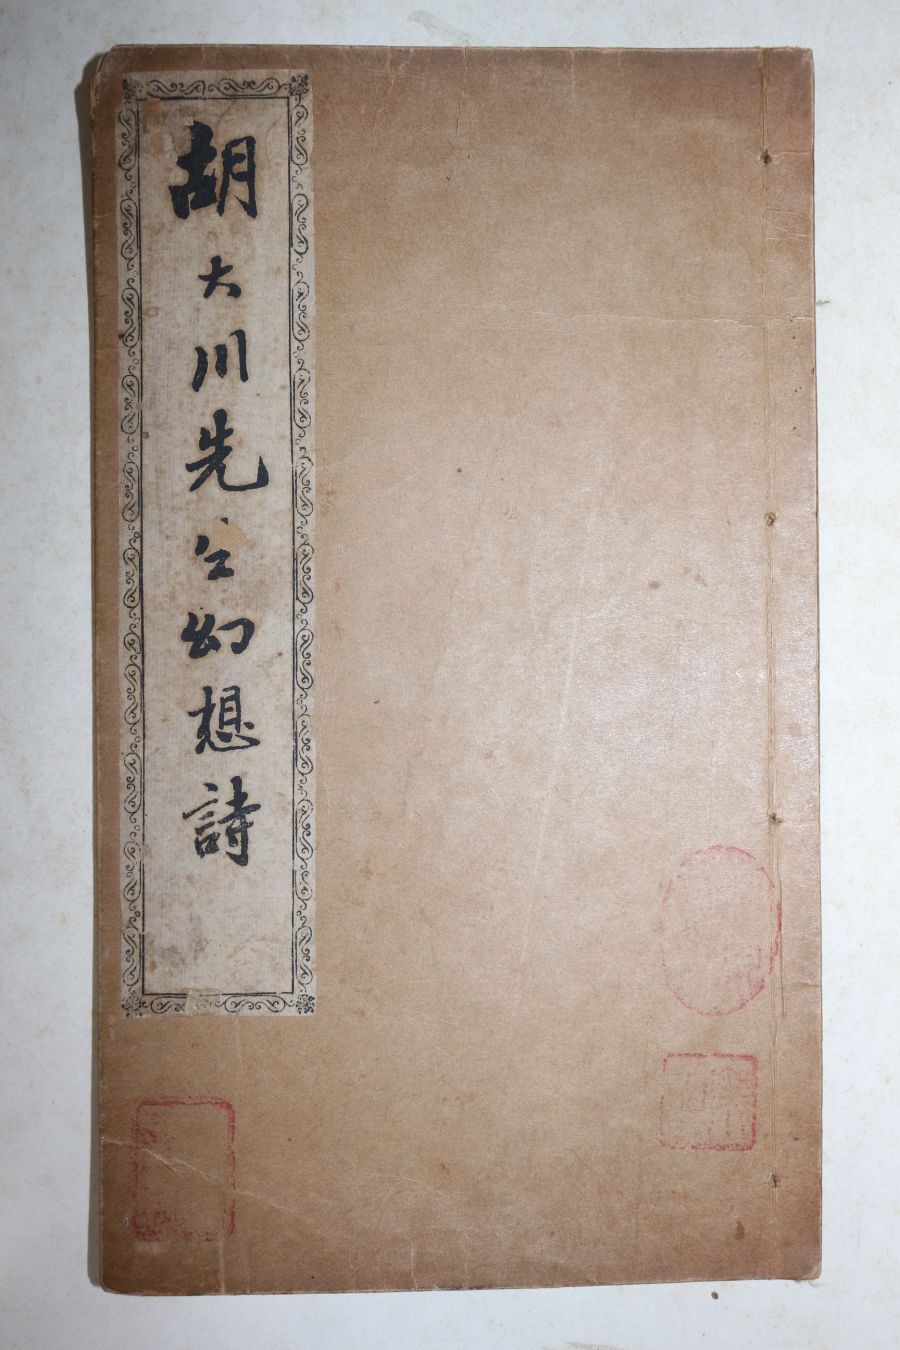 胡大川先生幻想詩